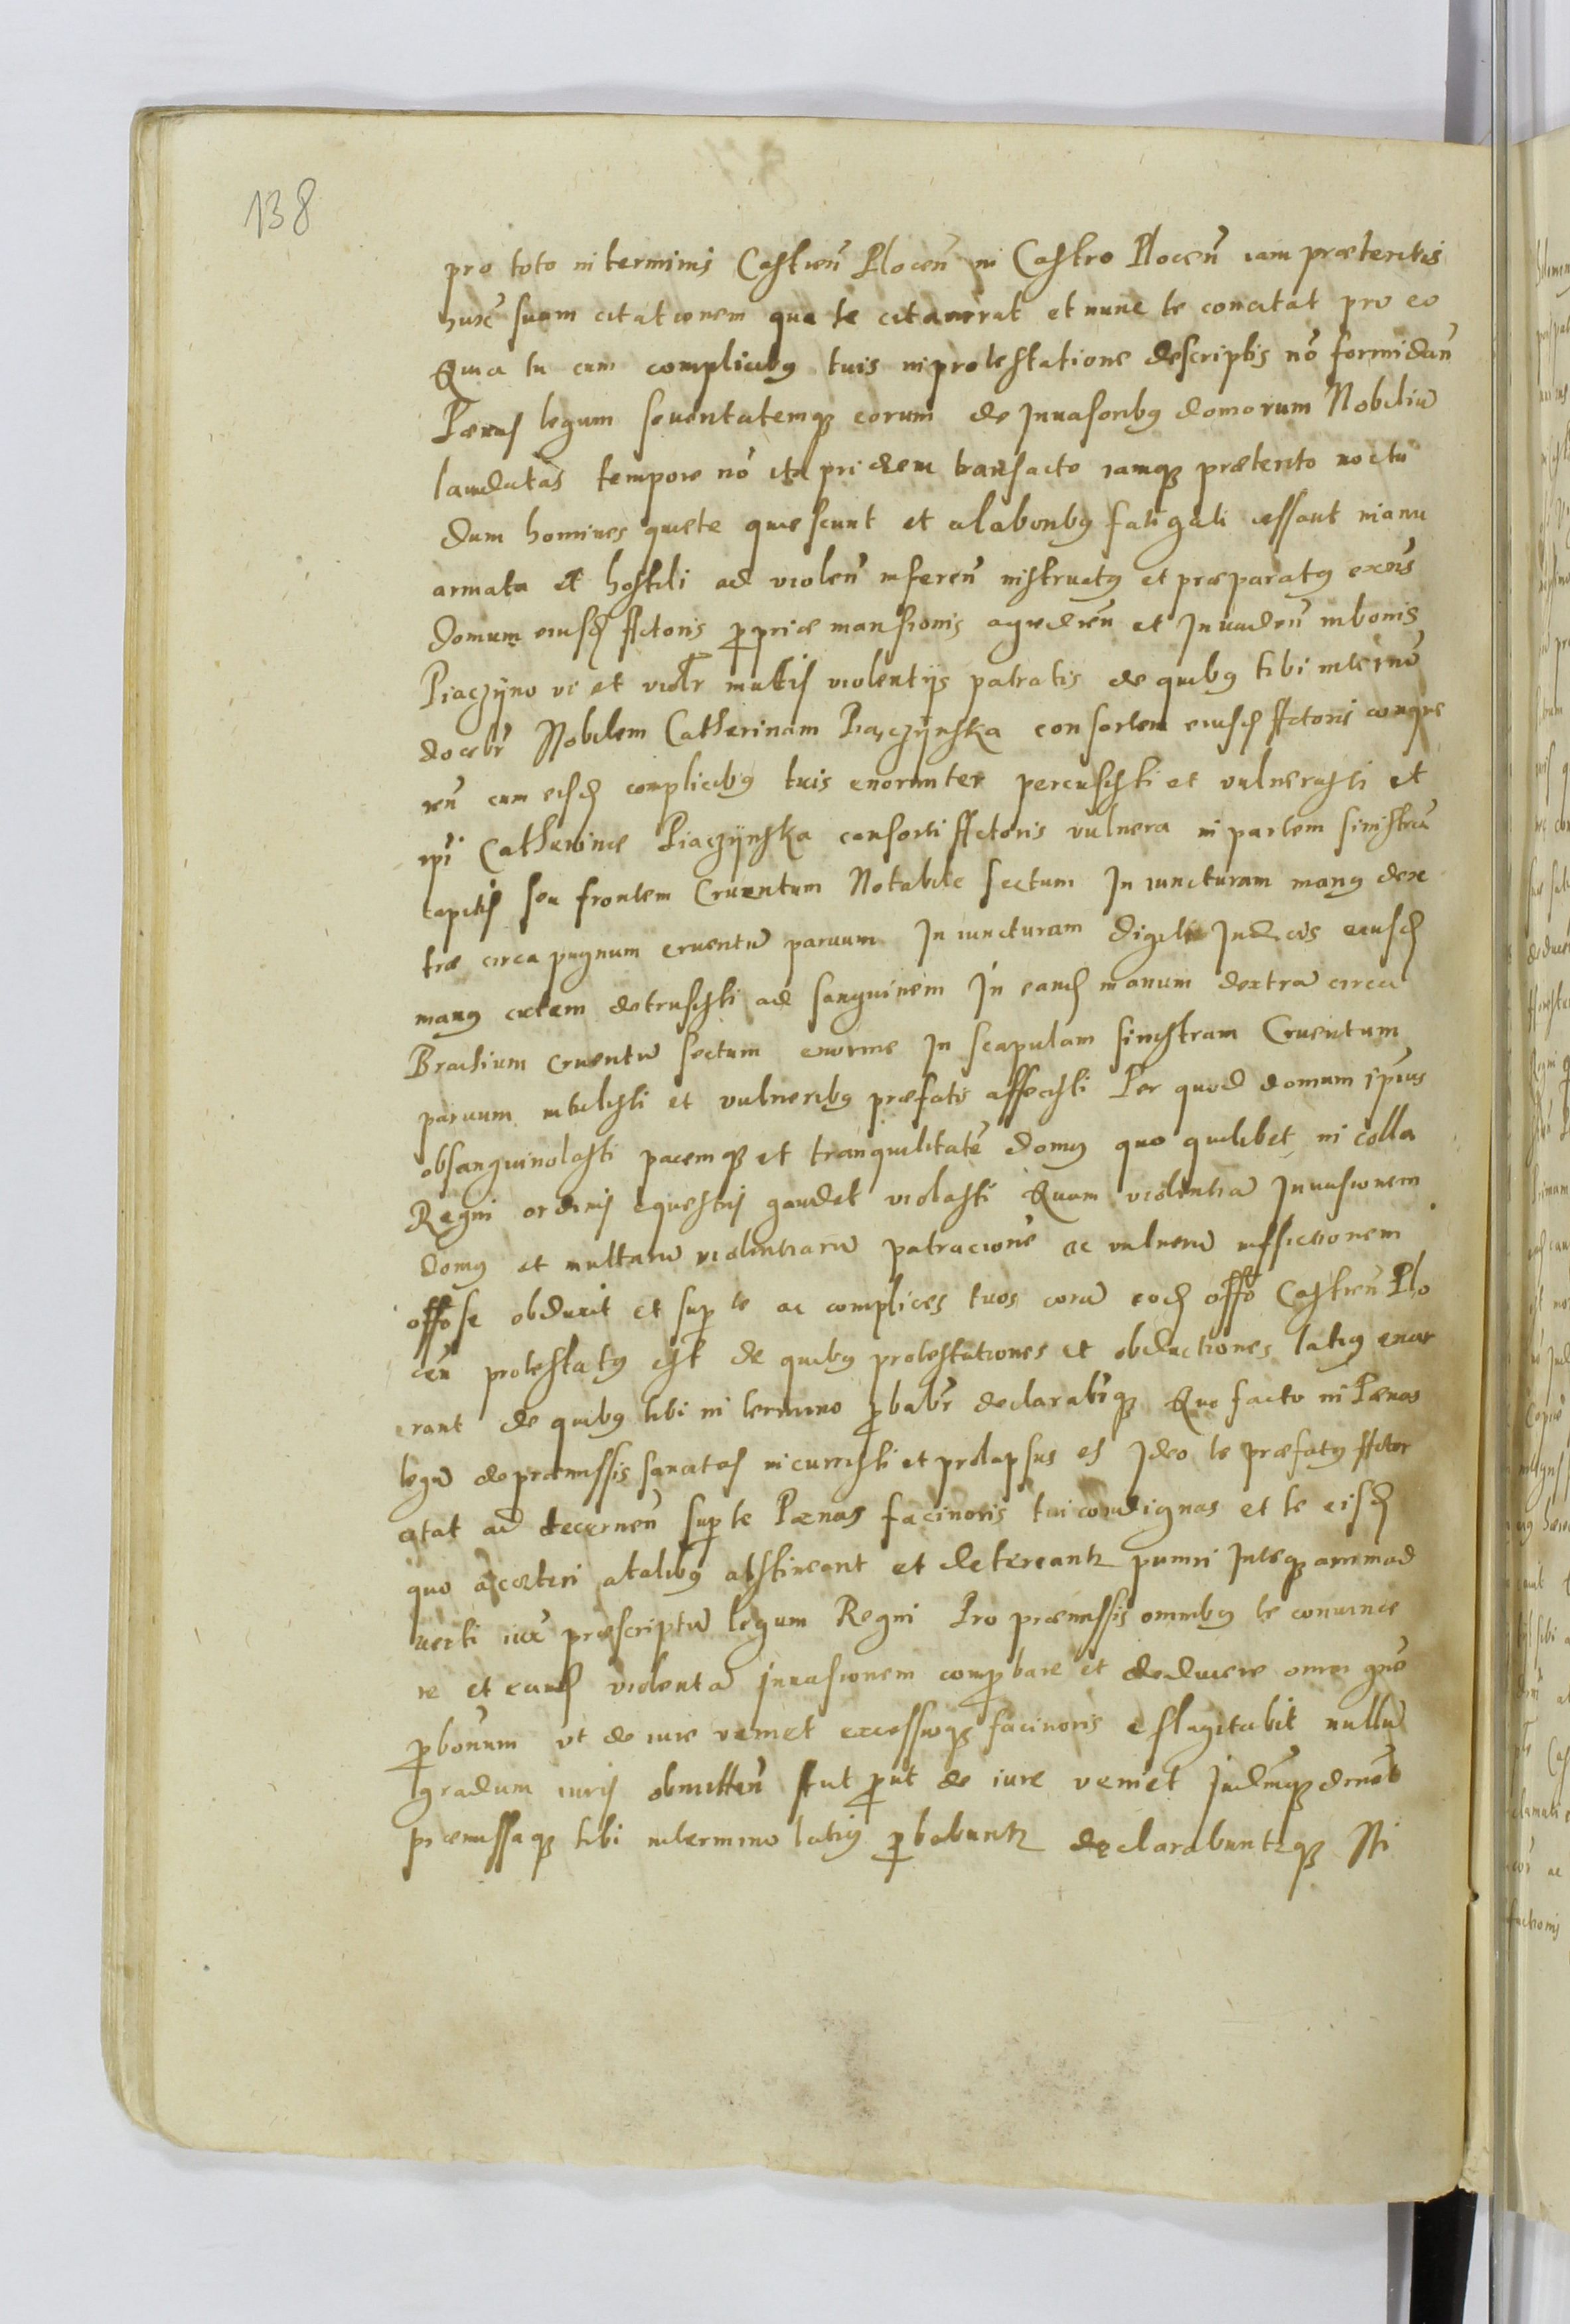 138
pro toto in terminis Castren̄ Plocen̄ in Castro Plocen̄ iam præteritis
iux̄ suam citationem qua te citauerat et nunc te concitat pro eo
Quia tu cum complicibꝰ tuis in protestatione descriptis nō formidan̄
Pænas legum seueritatemqꝫ eorum de Inuasoribꝰ domorum Nobiliū
laudatas tempore nō ita pridem transacto iamqꝫ præterito noctu
dum homines quiete quiescunt et a laboribꝰ fatigati cessant manu
armata et hostili ad violen̄ inferen̄ instructꝰ et præparatꝰ exn̄s
domum eiusd̄ Actoris ꝓpriæ mansionis agredien̄ et Inuaden̄ in bonis
Piączÿno vi et violr̄ multis violentÿs patratis de quibꝰ tibi in termō
docebr̄ Nobilem Catherinam Piączÿnska consortem eiusd̄ Actoris congre
ien̄ cum eisd̄ complicibꝰ tuis enormiter percussisti et vulnerasti et
ip̄i Catherinæ Piączÿnska consorti Actoris vulnera in partem sinistrā
capitis seu frontem Cruentum Notabile sectum In iuncturam manꝰ dex
træ circa pugnum cruentū paruum In iuncturam digiti Indicis eiusd̄
manꝰ cutem detrusisti ad sanguinem In eand̄ manum dextrā circa
Brachium cruentū sectum enorme In scapulam sinistram Cruentum
paruum intulisti et vulneribꝰ præfatis affecisti Per quod domum ip̄ius
obsanguinolasti pacemqꝫ et tranquilitatē domꝰ quo quilibet in colla
Regni ordinis equestris gaudet violasti Quam violentiā Inuasionem
domꝰ et multarū violentiarū patracionē ac vulnerū inflictionem
offō se obduxit et suꝑ te ac complices tuos corā eod̄ offō Castren̄ Plo
cen̄ protestatꝰ est de quibꝰ protestationes et obductiones latiꝰ enar
rant de quibꝰ tibi in termino ꝓbabr̄ declarabr̄qꝫ Quo facto in Pænas
legū de præmissis sancitas incurristi et prolapsus es Ideo te præfatꝰ Actor
citat ad decernen̄ suꝑ te Pænas facinoris tui condignas et te eisd̄
quo a cæteri a talibꝰ abstineant et detereantꝛ puniri Inteqꝫ animad
uerti iux̄ præscriptū legum Regni Pro præmissis omnibꝰ te conuince
re et eand̄ violentā Inuasionem comꝓbare et deducere omni gn̄e
ꝓbōnum vt de iure veniet excessuqꝫ facinoris eflagitabit nullū
gradum iuris obmitten̄ sint ꝓut de iure veniet
præmissaqꝫ tibi in termino latiꝰ ꝓbabuntꝛ declarabuntꝛqꝫ Sti